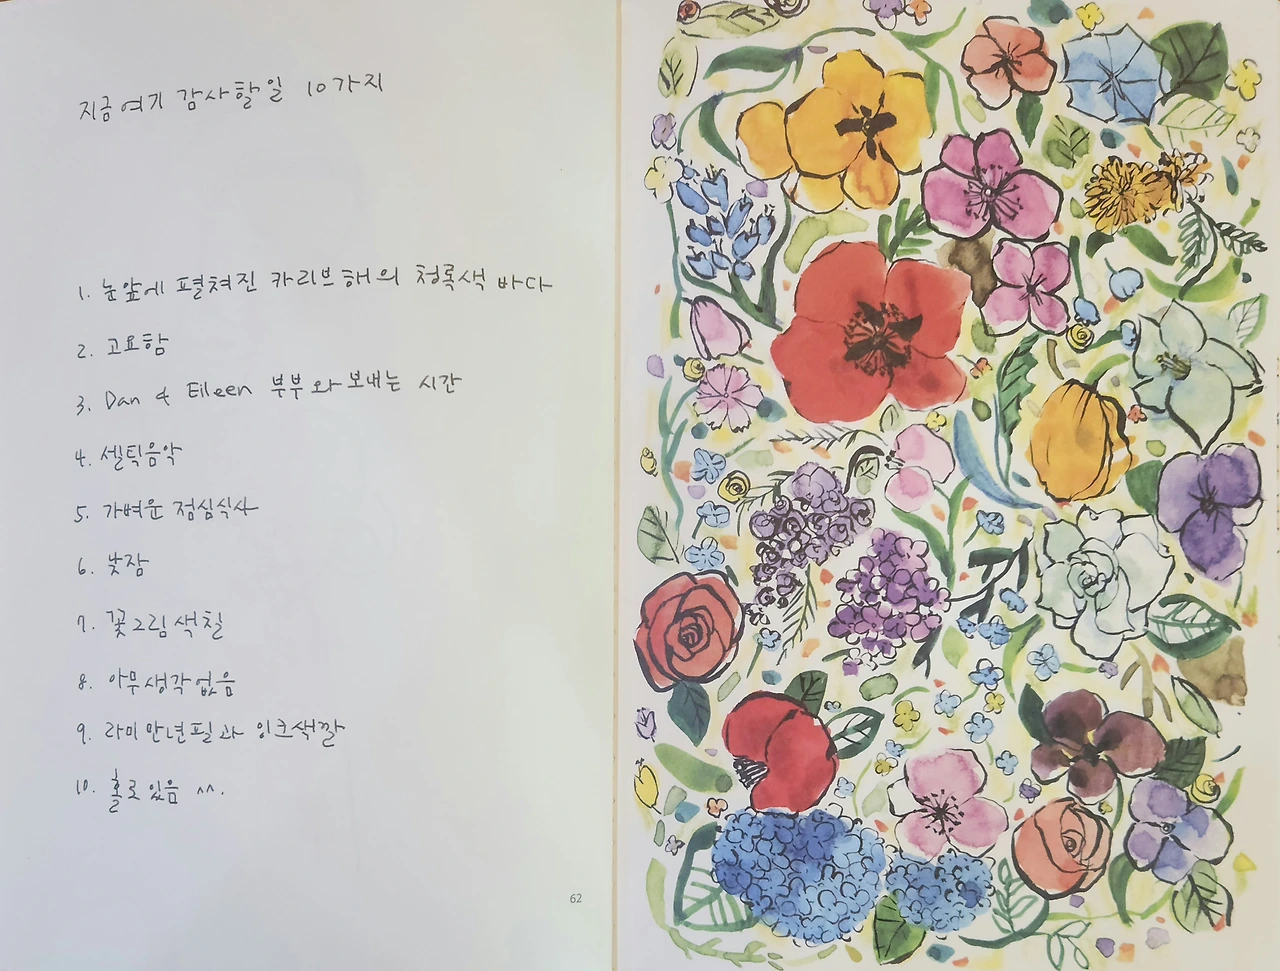 지금 여기 감사할 일 10가지
1. 눈앞에 펼쳐진 카리브해의 청록색 바다
2. 고요함
3. Dan & Eileen 부부와 보내는 시간
4. 셀틱음악
5. 가벼운 점심식사
6. 낮잠
7. 꽃그림 색칠
8. 아무 생각 없음
9. 라미 만년필과 잉크색깔
10. 홀로 있음 ^^.
62